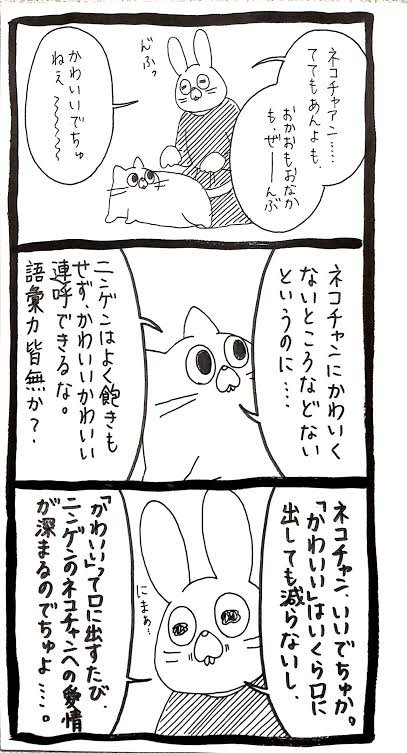 ネコチャアン……
ててもあんよも、
おかおもおなか
も、ぜーーんぶ
んふっ
かわいいでちゅ
ねぇ〜〜〜〜
ネコチャンにかわいく
ないところなどない
というのに……
ニンゲンはよく飽きも
せず、かわいいかわいい
連呼できるな。
語彙力皆無か?
ネコチャン、いいでちゅか。
「かわいい」はいくら口に
出しても減らないし、
にまぁ…
「かわいい」って口に出すたび、
ニンゲンのネコチャンへの愛情
が深まるのでちゅよ……。